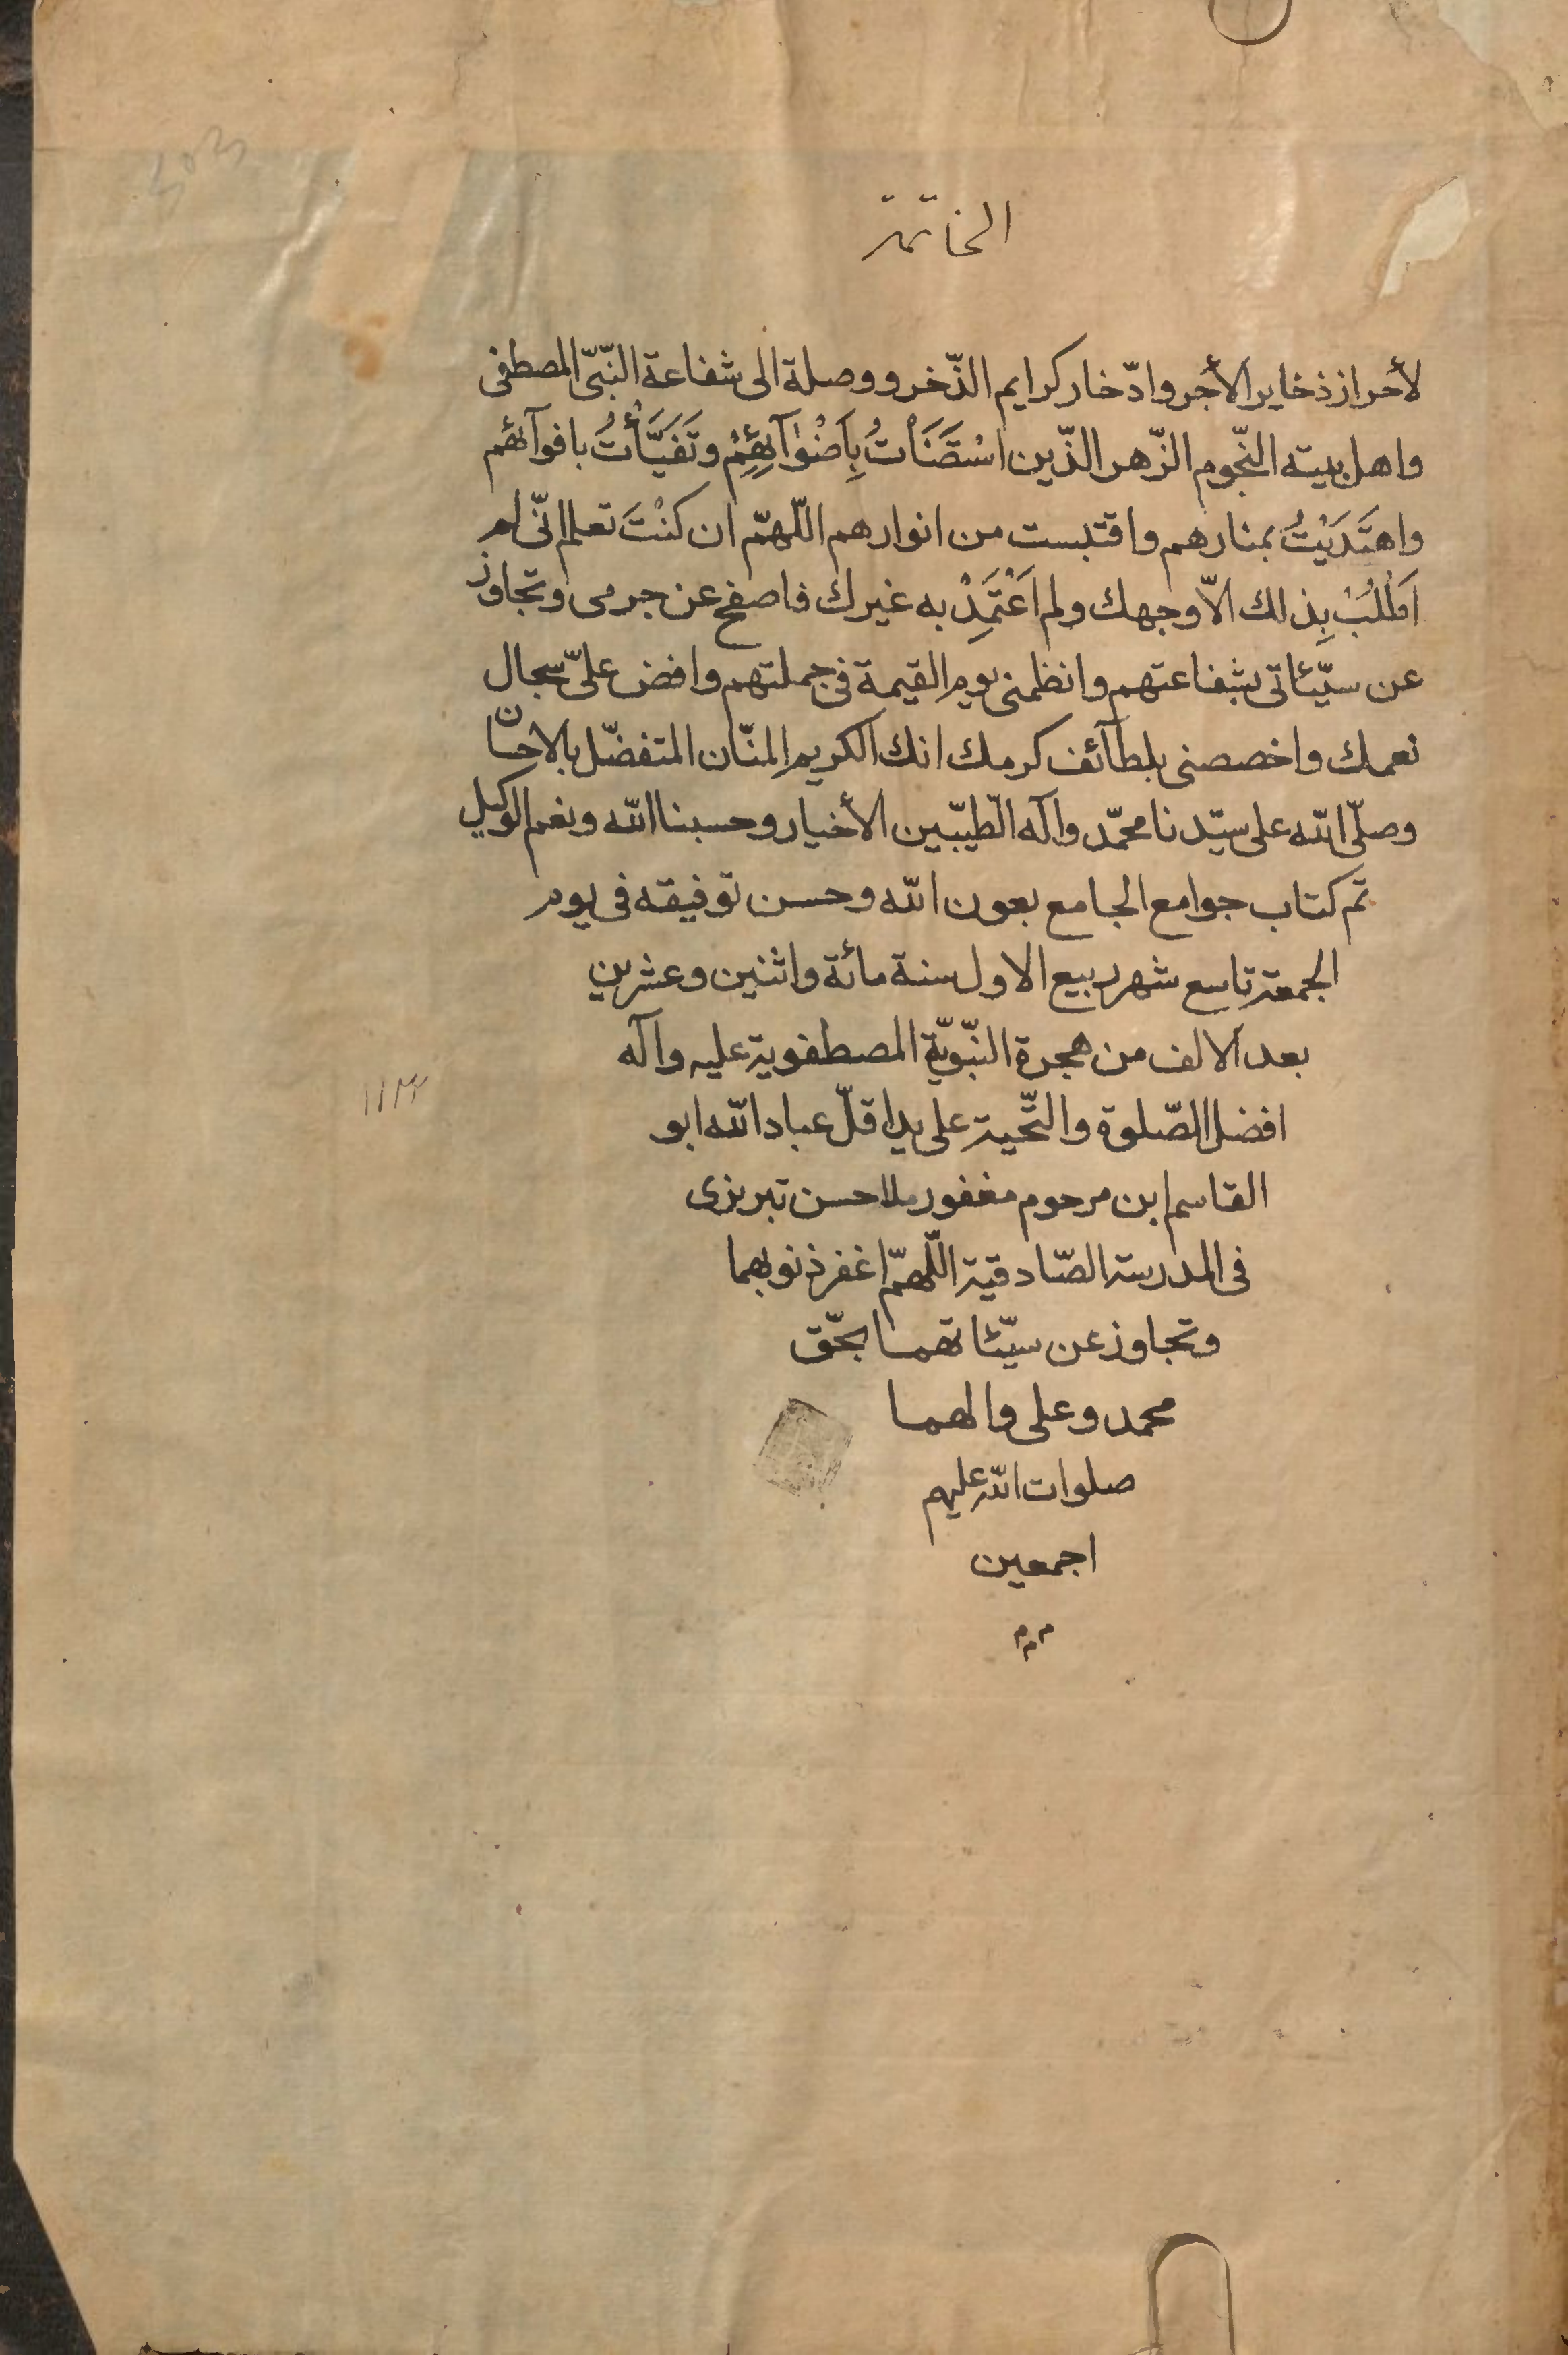 الخاتمة
لأحراز ذخاير الأجر وادّخار كرايم الذّخر ووصلة الى شفاعة النّبّى المصطفى
واهل بيته النّجوم الزّهر الذّين اسْتَضَئْاتُ بِاَضْوٰآئِهِمْ وتَفَيَّأْتُ بافوآئهم
واهتَدَيْتُ بمنارهم واقتبست من انوارهم اللّهمّ ان كنْتَ تعلم انّى لم
اَطْلُبْ بِذلك الاّ وجهك ولم اَعْتَمِدْ به غيرك فاصفح عن جرمى وتجاوز
عن سيّئاتى بشفاعتهم وانظمنى يوم القيمة فى جملتهم وافض علىّ سجال
نعمك واخصصنى بلطآئف كرمك انك الكريم المنّان المتفضّل بالاحسان
وصلّى الله على سيّدنا محمّد وآله الطّيبّين الأخيار وحسبنا الله ونعم الوكيل
تمّ كتاب جوامع الجامع بعون الله وحسن توفيقه فى يوم
الجمعة تاسع شهر ربيع الاول سنة مائة واثنين وعشرين
بعد الالف من هجرة النّبّويّة المصطفوية عليه وآله
افضل الصّلوة والتّحية على يد اقلّ عباد الله ابو
القاسم ابن مرحوم مغفور ملا حسن تبريزى
فى المدرسة الصّادقية اللّهمّ اغفر ذنوبهما
وتجاوز عن سيّئاتهما بحّق
محمد وعلى والهما
صلوات الله عليهم
اجمعين
م م م